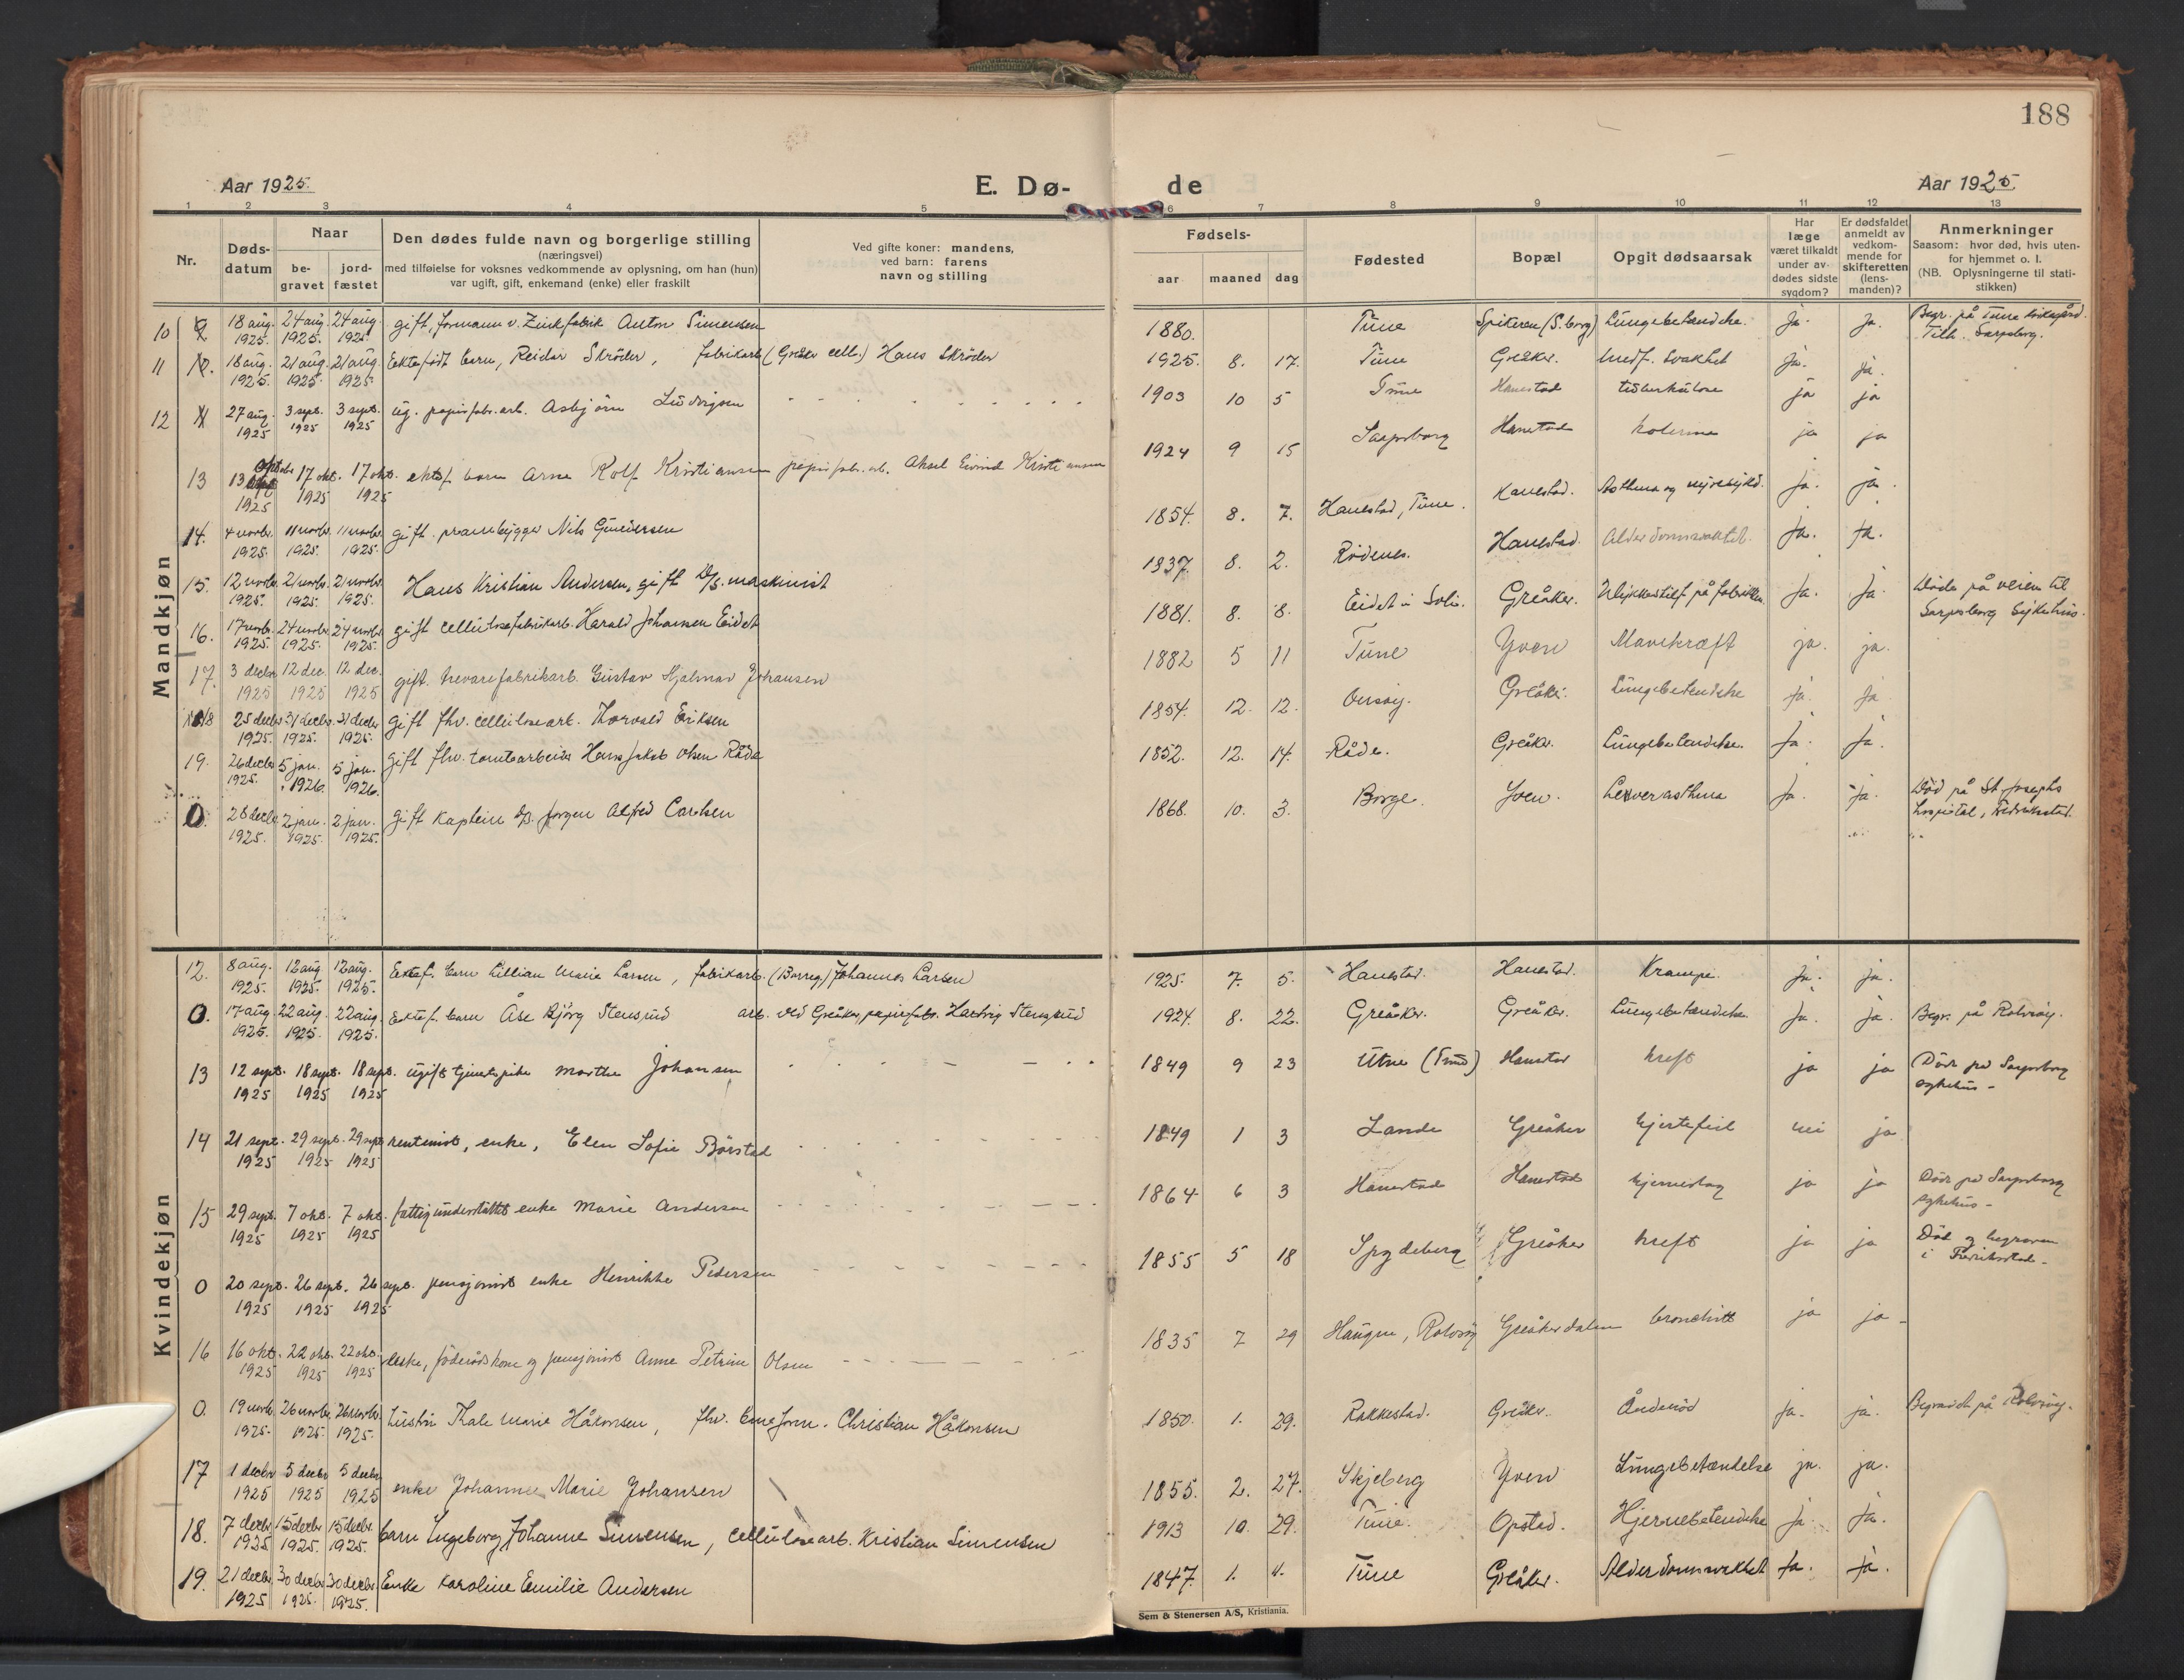 188
Aar 1925.
E. Dø-
de
Aar 1925.
1 2 3 4 5 6 7 8 9 10 11 12 13
Nr.
Døds-
datum
Naar
be-
gravet
jord-
fæstet
Den dødes fulde navn og borgerlige stilling
(næringsvei)
med tilføielse for voksnes vedkommende av oplysning, om han (hun)
var ugift, gift, enkemand (enke) eller fraskilt
Ved gifte koner: mandens,
ved barn: farens
navn og stilling
Fødsels-
aar maaned dag
Fødested
Bopæl
Opgit dødsaarsak
Har
læge
været tilkaldt
under av-
dødes sidste
sygdom?
Er dødsfaldet
anmeldt av
vedkom-
mende for
skifteretten
(lens-
manden)?
Anmerkninger
Saasom: hvor død, hvis uten-
for hjemmet o. l.
(NB. Oplysningerne til stati-
stikken)
Mandkjøn
10 18 aug. 24 aug. 24 aug. gift, formann v. Zinkfabrik Anton Simensen 1880. Tune Spikeren (S.borg) Lungebetændelse. Ja. Ja. Begr. på Tune
1925. 1925. 1925. Sarpsborg.
11 18 aug. 21 aug. 21 aug. Ektefødt barn, Reidar Skröder, fabrikarb. (Greåker cell.) Hans Skröder 1925. 8. 17. Tune Greåker. Medf. svakhet Ja. ja.
1925. 1925 1925.
12 27 aug. 3 sept. 3 sept. ug. papirfabr.arb. Asbjörn Ludvigsen 1903 10 5 Tune Hanestad tuberkulose ja ja
1925 1925 1925
13 13 oktober 17 okt. 17 okt. ektef. barn Arne Rolf Kristiansen papirfabr.arb. Aksel Eivind Kristiansen 1924 9 15 Sarpsborg Hanestad kolerine ja ja
1925 1925 1925
14. 4 novbr. 11 novbr. 11 novbr. gift. Nils Gundersen 1854. 8. 7. Hanestad, Tune. Hanestad. Asthma og Ja. ja.
1925. 1925. 1925.
15. 12 novbr. 21 novbr. 21 novbr. Hans Kristian Andersen, gift D/S. maskinist 1837. 8. 2. Rödenes. Hanestad. Alderdomssvakhet. Ja. Ja.
1925. 1925. 1925.
16. 17 novbr. 24 novbr. 24 novbr. gift cellulosefabrikarb. Harald Johansen Eidet 1881. 8. 8. Eidet i Soli. Greåker. Ulykkestilf. på fabrikken. Ja. Ja. Döde på veien til
1925. 1925. 1925. Sarpsborg sykehus.
17. 3 decbr 12 dec. 12 dec. gift. trevarefabrikarb. Gustav Hjalmar Johansen 1882 5 11 Tune Yven Mavekræft ja. ja.
1925 1925 1925
18 25 decbr 31 decbr. 31 decbr gift fhv. cellulosearb. Thorvald Eriksen 1854. 12. 12. Onsøy. Greåker. Lungebetendelse Ja. Ja
1925. 1925. 1925.
19. 26 decbr 5 jan. 5 jan. gift fhv. tomtearbeider Hans Jakob Olsen Råde 1852. 12. 14. Råde. Greåker. Lungebetendelse. Ja. Ja.
1925. 1926. 1926.
0. 28 decbr 2 jan. 2 jan. gift kaptein d/s. Jørgen Alfred Carlsen 1868. 10. 3. Borge. Yven. Ja. Ja. Död på St. Josephs
1925. 1925. 1925. hospital, Fredrikstad.
Kvindekjøn
12. 8 aug. 12 aug. 12 aug. Ektef. barn Lillian Marie Larsen, fabrikarb. (Borreg.) Johannes Larsen 1925. 7. 5. Hanestad. Hanestad. Krampe. Ja. ja.
1925. 1925. 1925.
0. 17 aug. 22 aug. 22 aug. Ektef. barn Åse Björg Stensrud arb. ved Greåker papirfabr. Hartvig Stensrud 1924. 8. 22. Greåker. Greåker. Lungebetændelse Ja. ja. Begr. på Rolvsøy.
1925. 1925. 1925.
13 12 sept. 18 sept. 18 sept. ugift tjenestepike Marthe Johansen 1849 9 23 Utne (Tune) Hanestad kreft ja ja Döde på Sarpsborg
1925 1925 1925 sykehus -
14 21 sept. 29 sept. 29 sept rentenist, enke, Elen Sofie Börstad 1849 1 3 Lande Greåker hjertefeil nei ja
1925 1925 1925
15 29 sept. 7 okt. 7 okt. fattigunderstöttet enke Marie Andersen 1864 6 3 Hanestad Hanestad hjerneslag ja ja Döde på Sarpsborg
1925 1925 1925 sykehus -
0 20 sept. 26 sept. 26 sept. pensjonist enke Henrikke Pedersen 1855 5 18 Spydeberg Greåker kreft ja ja Död og begraven
1925 1925 1925 i Fredrikstad -
16 16 okt. 22 okt. 22 okt. enke, föderådskone og pensjonist Anne Petrine Olsen 1835 7 29 Haugen, Rolvsöy Greåkerdalen bronchitt ja ja -
1925 1925 1925
0. 19 novbr. 26 novbr. 26 novbr. hustru Thale Marie Håkonsen, fhv. Christian Håkonsen 1850. 1. 29. Rakkestad. Greåker. Åndenöd ja. ja. Begravet på Rolvsøy.
1925. 1925. 1925.
17 1 decbr 5 decbr 5 decbr enke Johanne Marie Johansen 1855. 2. 27. Skjeberg Yven Lungebetændelse ja. ja.
1925 1925 1925
18. 7 decbr 15 decbr 15 decbr. barn Ingeborg Johanne Simensen, cellulosearb. Kristian Simensen 1913 10. 29. Tune. Opstad. Hjernebetendelse Ja. Ja.
1925 1925. 1925.
19. 21 decbr. 30 decbr 30 decbr Enke Karoline Emilie Andersen 1847. 1. 4. Tune Greåker. Alderdomssvakhet Ja. Ja.
1925 1925. 1925.
Sem & Stenersen A/S, Kristiania.